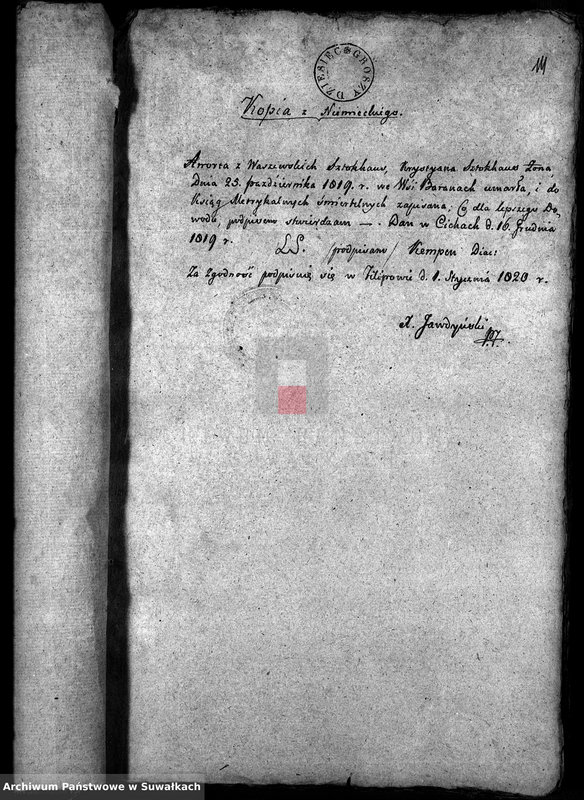 DZIESIĘĆ GROSZY
14
Kopia z Niemieckiego.
Anorta z Waszewskich Sztokhaus, Krystyana Sztokhaus Żona
Dnia 25. Października 1819. r. we Wsi Baranach umarła, i do
Ksiąg Metrykalnych śmiertelnych zapisana; Co dla lepszego Do,
wodu, podpisem stwierdzam —. Dan w Cichach d. 16. Grudnia
1819 r. LS. /podpisano/ Kempen Diac:
Za zgodność podpisuię się w Filipowie d. 1. Stycznia 1820 r.
X. Jawdyński
Archiwum Państwowe w Suwałkach